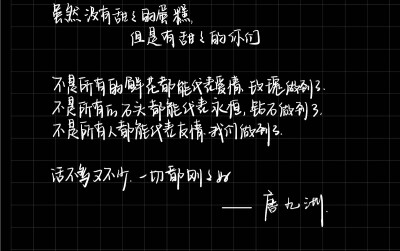 虽然没有甜々的蛋糕,
但是有甜々的你们
不是所有的鲜花都能代表爱情,玫瑰做到了.
不是所有的石头都能代表永恒,钻石做到了.
不是所有人都能代表友情,我们做到了.
话不多又不少,一切都刚々好
—— 唐九洲.